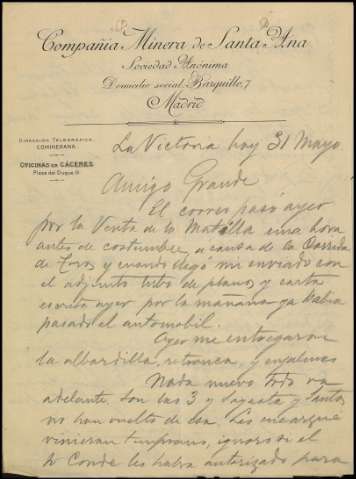 Compañía Minera de Santa Ana
Sociedad Anónima
Domicilio social, Barquillo, 7
Madrid
DIRECCIÓN TELEGRÁFICA,
COMINERANA
OFICINAS EN CÁCERES
Plaza del Duque
La Victoria hoy 31 Mayo.
Amigo Grande
El correo pasó ayer
por la Venta de la Matilla una hora
antes de costumbre, a causa de la Corrida
de Toros y cuando llegó mi enviado con
el adjunto tubo de planos y carta
escrita ayer por la mañana ya había
pasado el automobil.
Ayer me entregaron
la albardilla, retranca, y enjalmas
Nada nuevo todo va
adelante. Son las 3 y Sagasta y Santos
no han vuelto de esa. Les encargué
vinieran temprano, ignoro si el
Sr Conde les habrá autorizado para